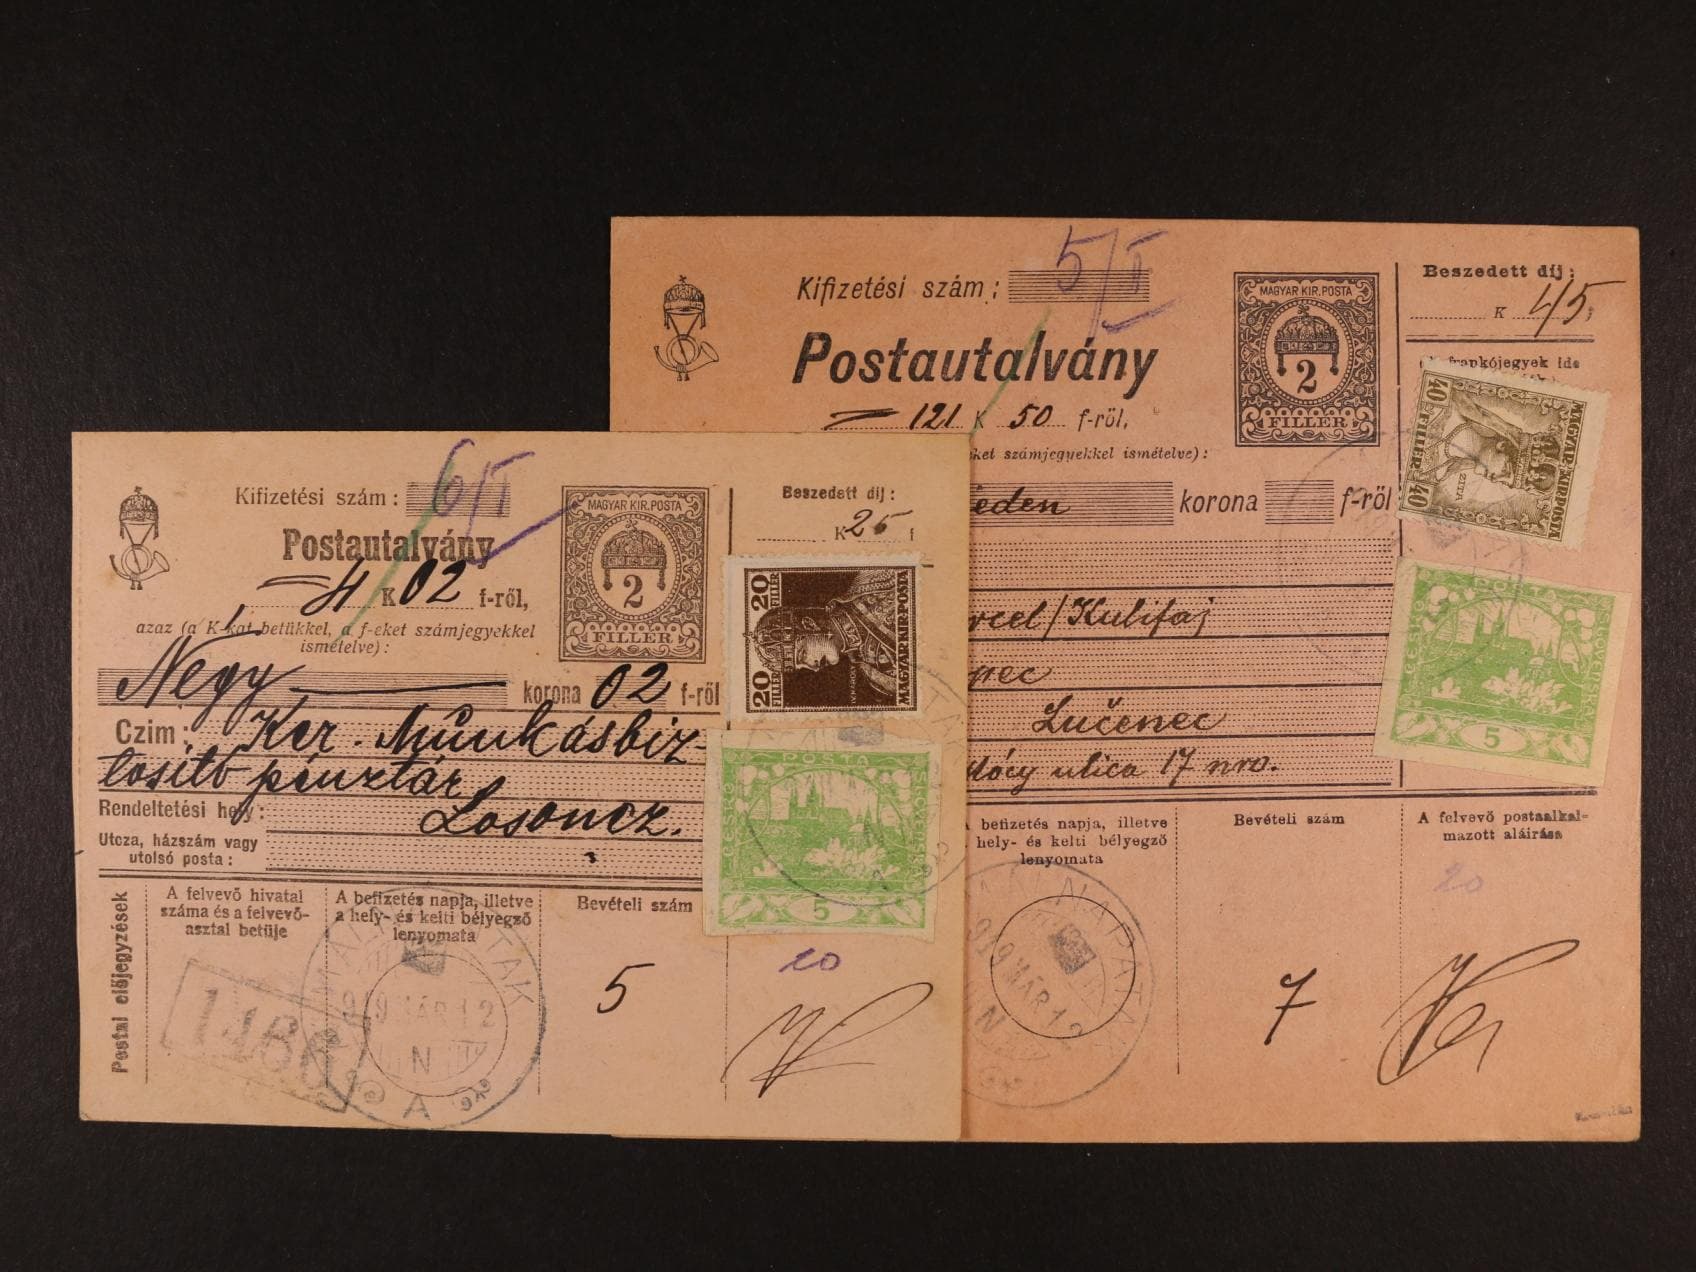 Kifizetési szám: 5/I
Postautalvány
121 K 50 f-ről,
eket számjegyekkel ismételve):
eden korona f-ről
MAGYAR KIR. POSTA
2
FILLÉR
Beszedett díj:
K 45
frankójegyek ide
MAGYAR KIR. POSTA
40 FILLÉR 40
ZITA
POSTA
ČESKO
SLOVENSKÁ
5
rcel/Kulifaj
pec
Lučenec
ulica 17 nro.
A befizetés napja, illetve
a hely- és kelti bélyegző
lenyomata
Bevételi szám
A felvevő postaalkal-
mazott aláírása
20
7
MÁLNAPATAK
919 MÁR 12
N
Kifizetési szám: 6/I
Postautalvány
4 K 02 f-ről,
azaz (a K-kat betükkel, a f-eket számjegyekkel
ismételve):
Négy korona 02 f-ről
MAGYAR KIR. POSTA
2
FILLÉR
Beszedett díj:
K 25 f
20 FILLÉR
20 FILLÉR
MAGYAR KIR. POSTA
Czim: Ker. Munkásbiz-
tosító pénztár
Rendeltetési hely: Losoncz.
Utcza, házszám vagy
utolsó posta:
POSTA
ČESKO
SLOVENSKÁ
5
Postai előjegyzések
A felvevő hivatal
száma és a felvevő-
asztal betüje
A befizetés napja, illetve
a hely- és kelti bélyegző
lenyomata
Bevételi szám
5
20
MÁLNAPATAK
919 MÁR 12
N
A